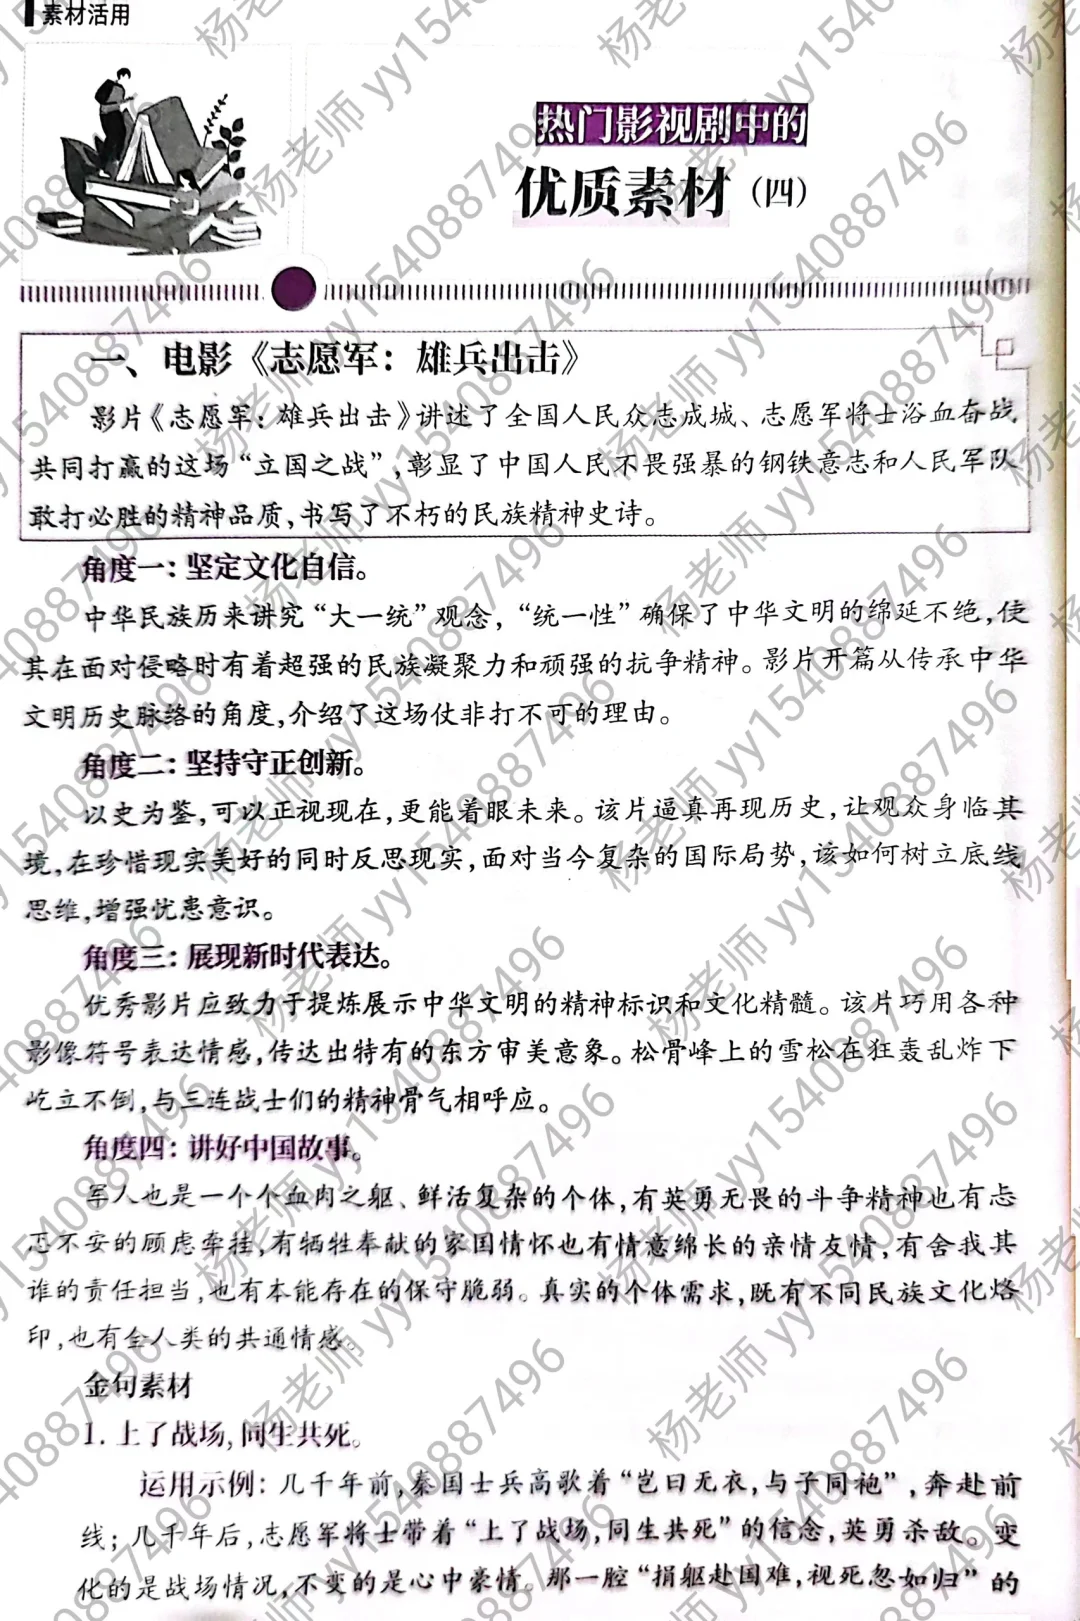 素材活用
热门影视剧中的
优质素材（四）
一、电影《志愿军：雄兵出击》
影片《志愿军：雄兵出击》讲述了全国人民众志成城、志愿军将士浴血奋战
共同打赢的这场“立国之战”，彰显了中国人民不畏强暴的钢铁意志和人民军队
敢打必胜的精神品质，书写了不朽的民族精神史诗。
角度一：坚定文化自信。
中华民族历来讲究“大一统”观念，“统一性”确保了中华文明的绵延不绝，使
其在面对侵略时有着超强的民族凝聚力和顽强的抗争精神。影片开篇从传承中华
文明历史脉络的角度，介绍了这场仗非打不可的理由。
角度二：坚持守正创新。
以史为鉴，可以正视现在，更能着眼未来。该片逼真再现历史，让观众身临其
境，在珍惜现实美好的同时反思现实，面对当今复杂的国际局势，该如何树立底线
思维，增强忧患意识。
角度三：展现新时代表达。
优秀影片应致力于提炼展示中华文明的精神标识和文化精髓。该片巧用各种
影像符号表达情感，传达出特有的东方审美意象。松骨峰上的雪松在狂轰乱炸下
屹立不倒，与三连战士们的精神骨气相呼应。
角度四：讲好中国故事。
军人也是一个个血肉之躯、鲜活复杂的个体，有英勇无畏的斗争精神也有忐
忑不安的顾虑牵挂，有牺牲奉献的家国情怀也有情意绵长的亲情友情，有舍我其
谁的责任担当，也有本能存在的保守脆弱。真实的个体需求，既有不同民族文化烙
印，也有全人类的共通情感。
金句素材
1. 上了战场，同生共死。
运用示例：几千年前，秦国士兵高歌着“岂曰无衣，与子同袍”，奔赴前
线；几千年后，志愿军将士带着“上了战场，同生共死”的信念，英勇杀敌。变
化的是战场情况，不变的是心中豪情。那一腔“捐躯赴国难，视死忽如归”的
杨老师 yy1540887496